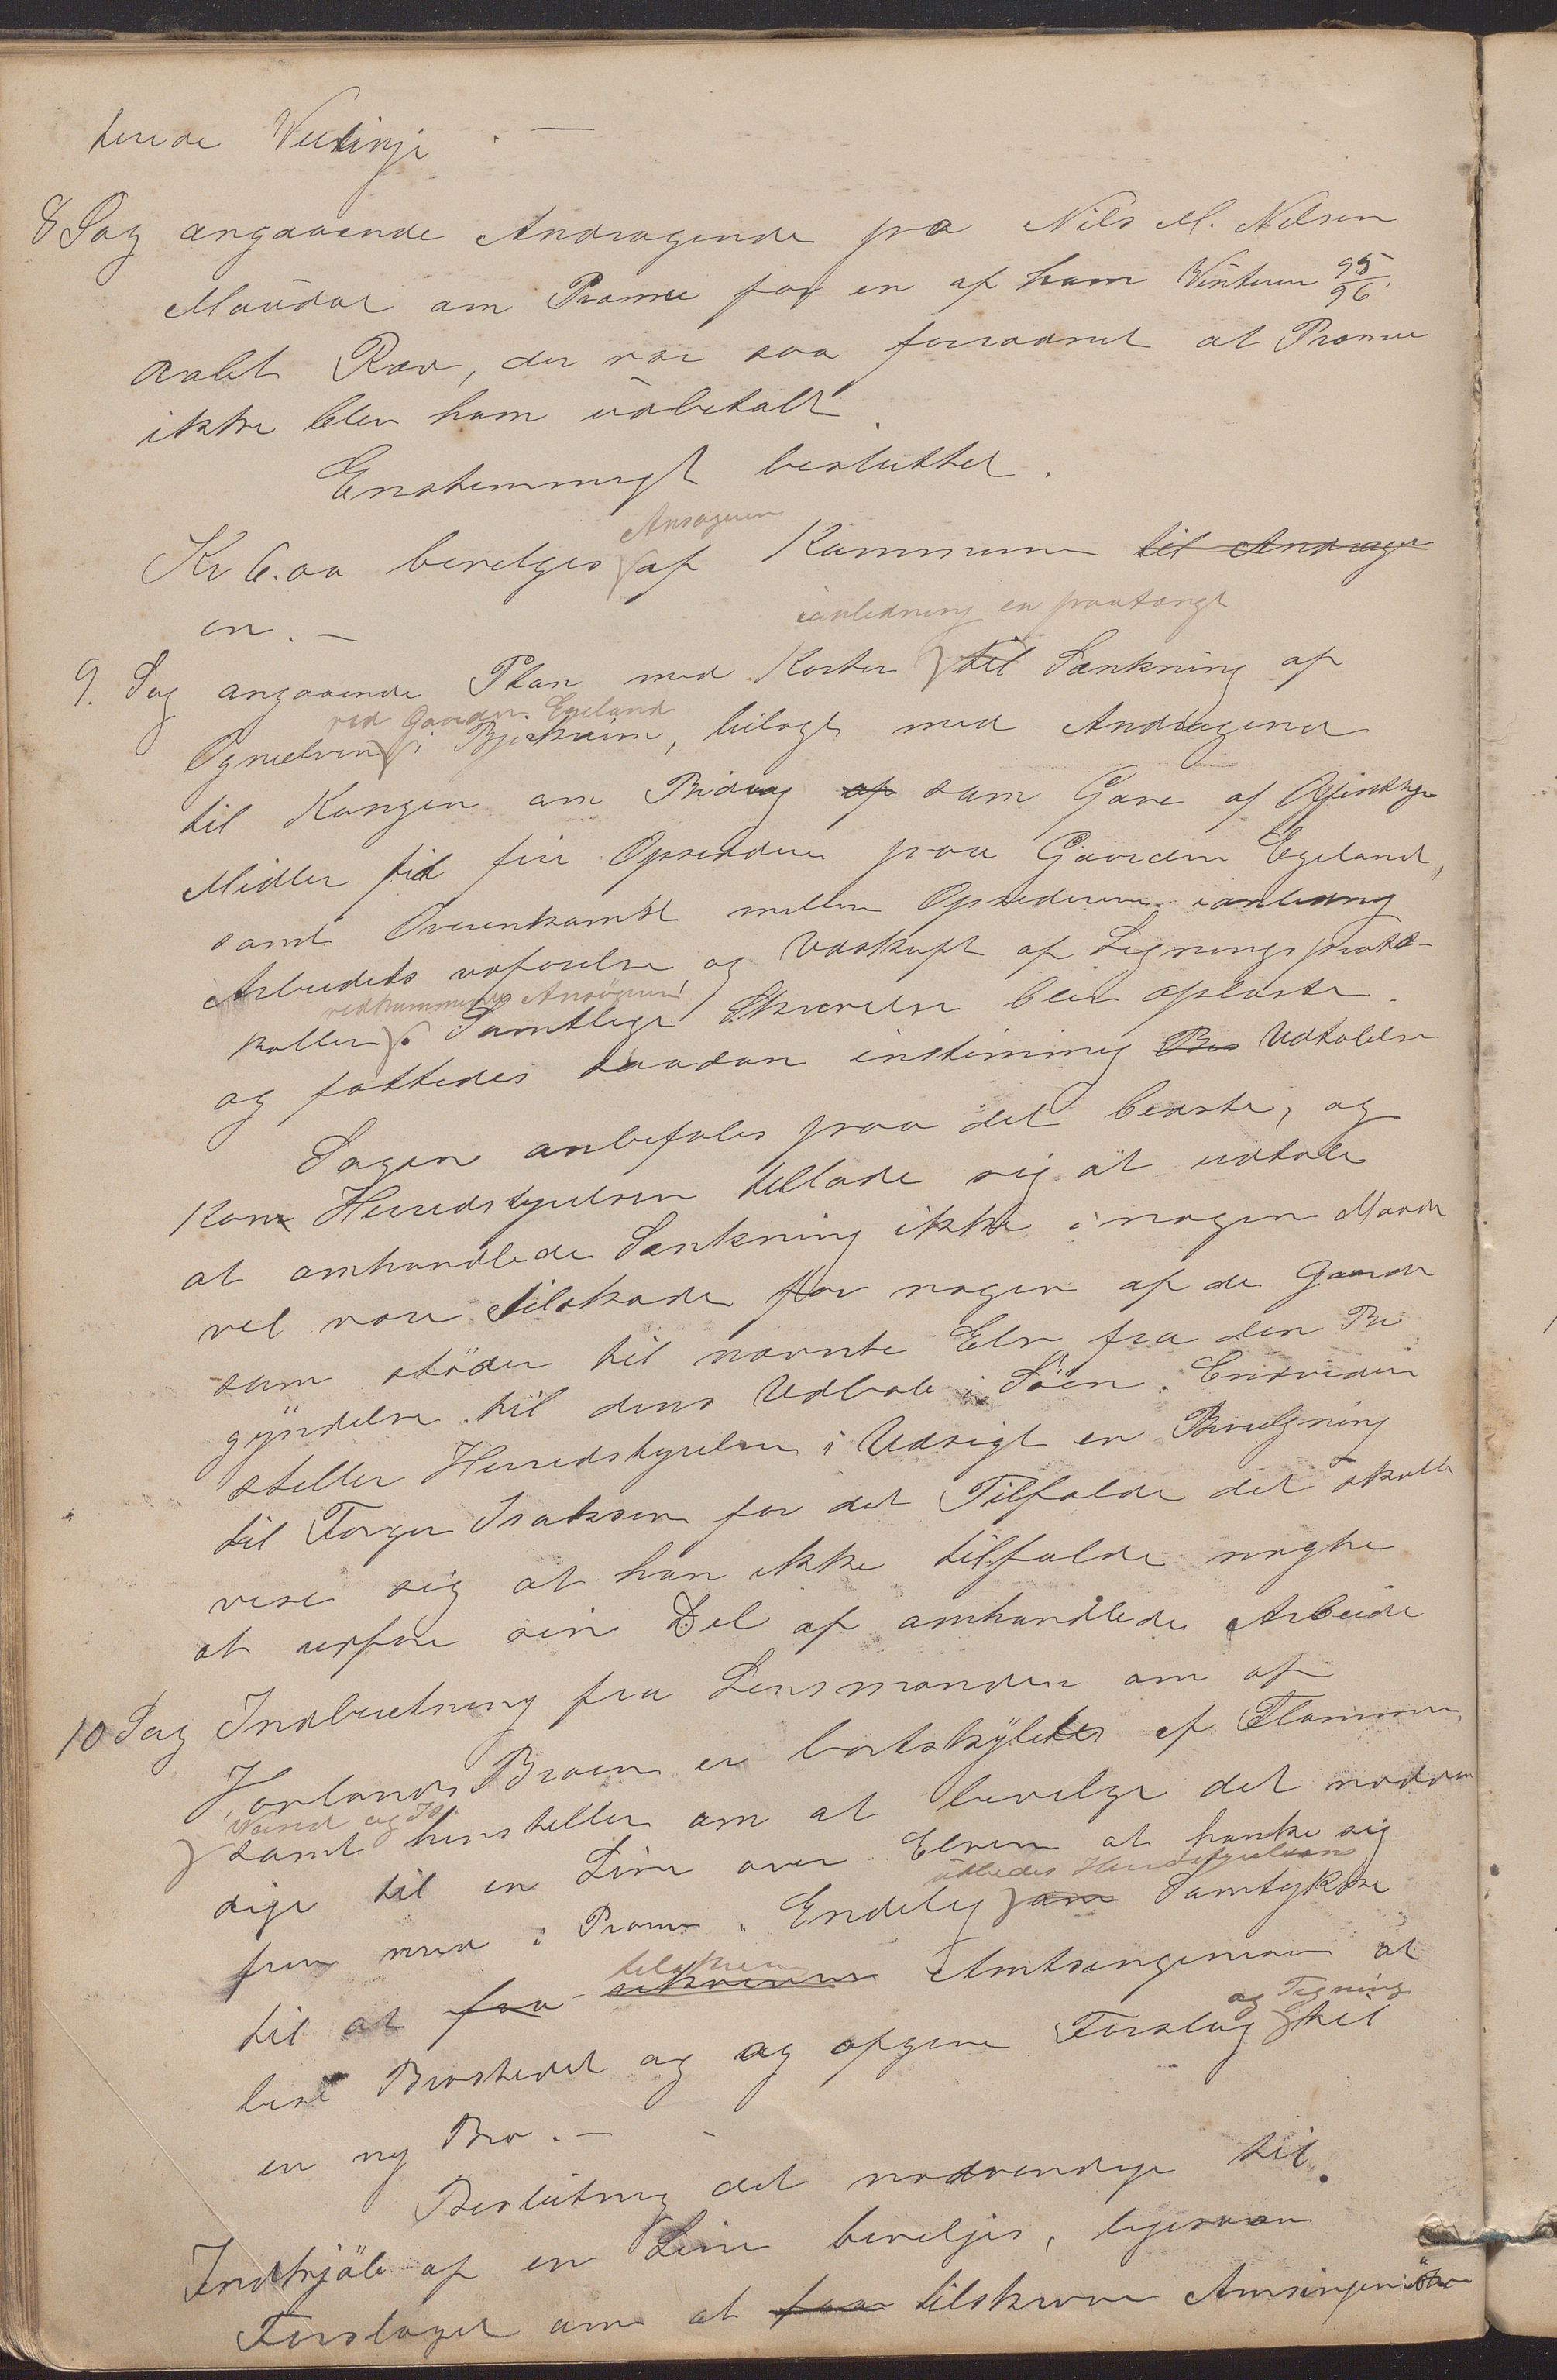 tende Veilinje . —
8 Sag angaaende Andragende fra Nils M. Nilsen
Maudal om Præmie for en af ham Vinteren 95/96
Ræv, der var saa forraadnet at Præmie
ikke blev ham udbetalt.
Enstemmigt besluttet.
Ansøgeren
Kr 6.00 bevilges af Kommunen til Andrager
en. —
ianledning en paatængt
9. Sag angaaende Plan med Karter til Sænkning af
ved Gaarden Egeland
Ognaelven i Bjerkreim, bilagt med Andragende
til Kongen om Bidrag af som Gave af Offentlige
Midler fil fire Opsiddere paa Gaarden Egeland,
samt Overenkomst mellem Opsidderne ianledning
Arbeidets udførelse og Udskrift af Ligningsproto-
vedkommende Ansøgerne
kollen. Samtlige Skrivelse blev oplæste.
og fattedes saadan enstemmig Bes Udtalelse
Sagen anbefales paa det bedste, og
kan Herredstyrelsen tillade sig at udtale
at omhandlede Sænkning ikke i nogen Maade
vil være tilskade for nogen af de Gaarde
som støder til nævnte Elv fra den Be
gyndelse til dens Udløb i Søen. Endvidere
stiller Herredstyrelsen i Udsigt en Bevilgning
til Torger Isaksen for det Tilfælde det skulle
vise sig at han ikke tilfulde magter
at udføre sin Del af omhandlede Arbeide
10 Sag Indberetning fra Lensmanden om at
Hovlands Broen er bortskyldet af Flommen,
Vand og Is
samt henstiller om at bevilge det nødven
dige til en Line over Elven at hanke sig
udbedes Herredstyrelsens
frem med i Pram. Endelig om Samtykke
tilskrive
til at faa Amtsingeniøren at
og Tegning
bese Brostedet og og opgive Forslag til
en ny Bro. —
Beslutning det nødvendige til
Indkjøb af en Line beviljes, ligesom
Forslaget om at faa tilskrive Amsingeniøren